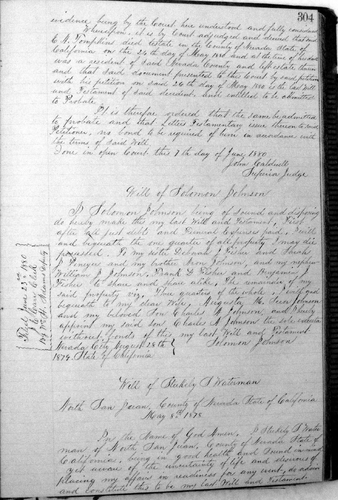 304
evidence being by the Court here understood and fully considered
Whereupon, it is by Court adjudged and decreed that said
E. H. Tompkins died Estate in the County of Nevada State of
California on the 24th day of May 1880 and at the time of his death
was a resident of said Nevada County and left Estate therein
and that said document presented to this Court by said petitioner
with his petition on said 26th day of May 1880 is the last Will
and Testament of said decedent and entitled to be admitted
to Probate.
It is therefore ordered that the same be admitted
to probate and that Letters Testamentary issue thereon to said
Petitioner, no bond to be required of him in accordance with
the terms of said Will.
Done in open Court this 7th day of June 1880
John Caldwell
Superior Judge
Will of Solomon Johnson
I Solomon Johnson being of sound and disposing
do hereby make this my last Will and Testament, First
after all just debts and Funeral Expenses paid, I will
and bequeath the one quarter of all property I may die
possessed. To my sister Deborah J. Fisher and Sarah
and my brother John Johnson, and my nephew
William J. Johnson, Frank D. Fisher and Benjamin J.
Fisher to share and share alike, The remainder of my
said property viz. Three quarters of the whole, I give and
bequeath to my dear Wife, Augusta M. Johnson
and my beloved Son Charles A. Johnson, and I hereby
appoint my said son, Charles A. Johnson the sole executor
without bonds of this my last Will and Testament
Nevada City August 28th
1879. State of California
Solomon Johnson
Filed June 23rd 1880
Clerk
Deputy
Will of Stukely S. Waterman
North San Juan, County of Nevada State of California
May 8th 1878
In the Name of God Amen. I Stukely S. Water
man of North San Juan, County of Nevada State of
California, being in good health and sound in mind
yet aware of the uncertainty of life and desirous of
placing my affairs in readiness for any event, do advise
and constitute this to be my last Will and Testament